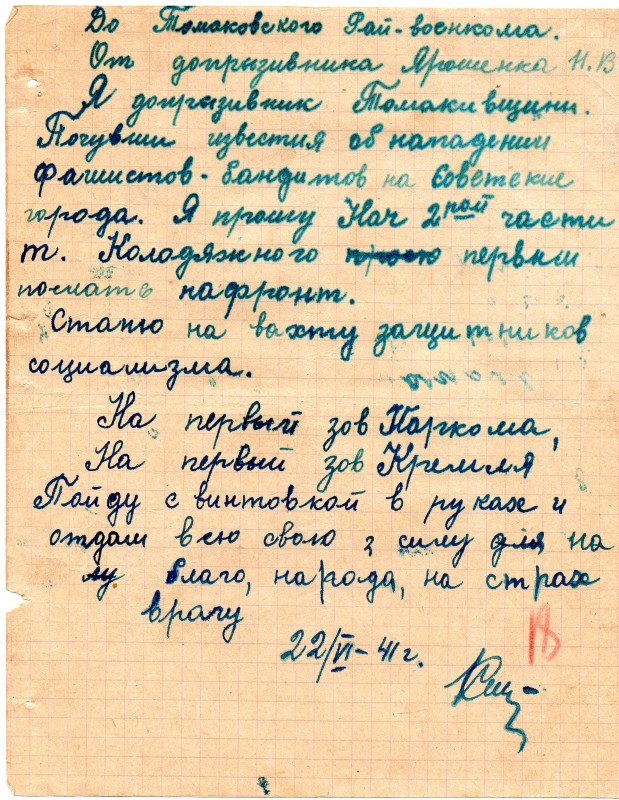 До Томаковского Рай-военкома.
От допрызивника Ярошенка Н.В
Я допрызивник Томакивщини.
Почувши известия об нападении
фашистов-бандитов на Советские
города. Я прошу Нач 2рой части
т. Колодяжного первым
послать нафронт.
Стаю на вахту защитников
социализма.
На первый зов Наркома,
На первый зов Кремля
Пойду с винтовкой в руках и
отдам всю свою силу для на
благо, народа, на страх
врагу
22/VI-41г.